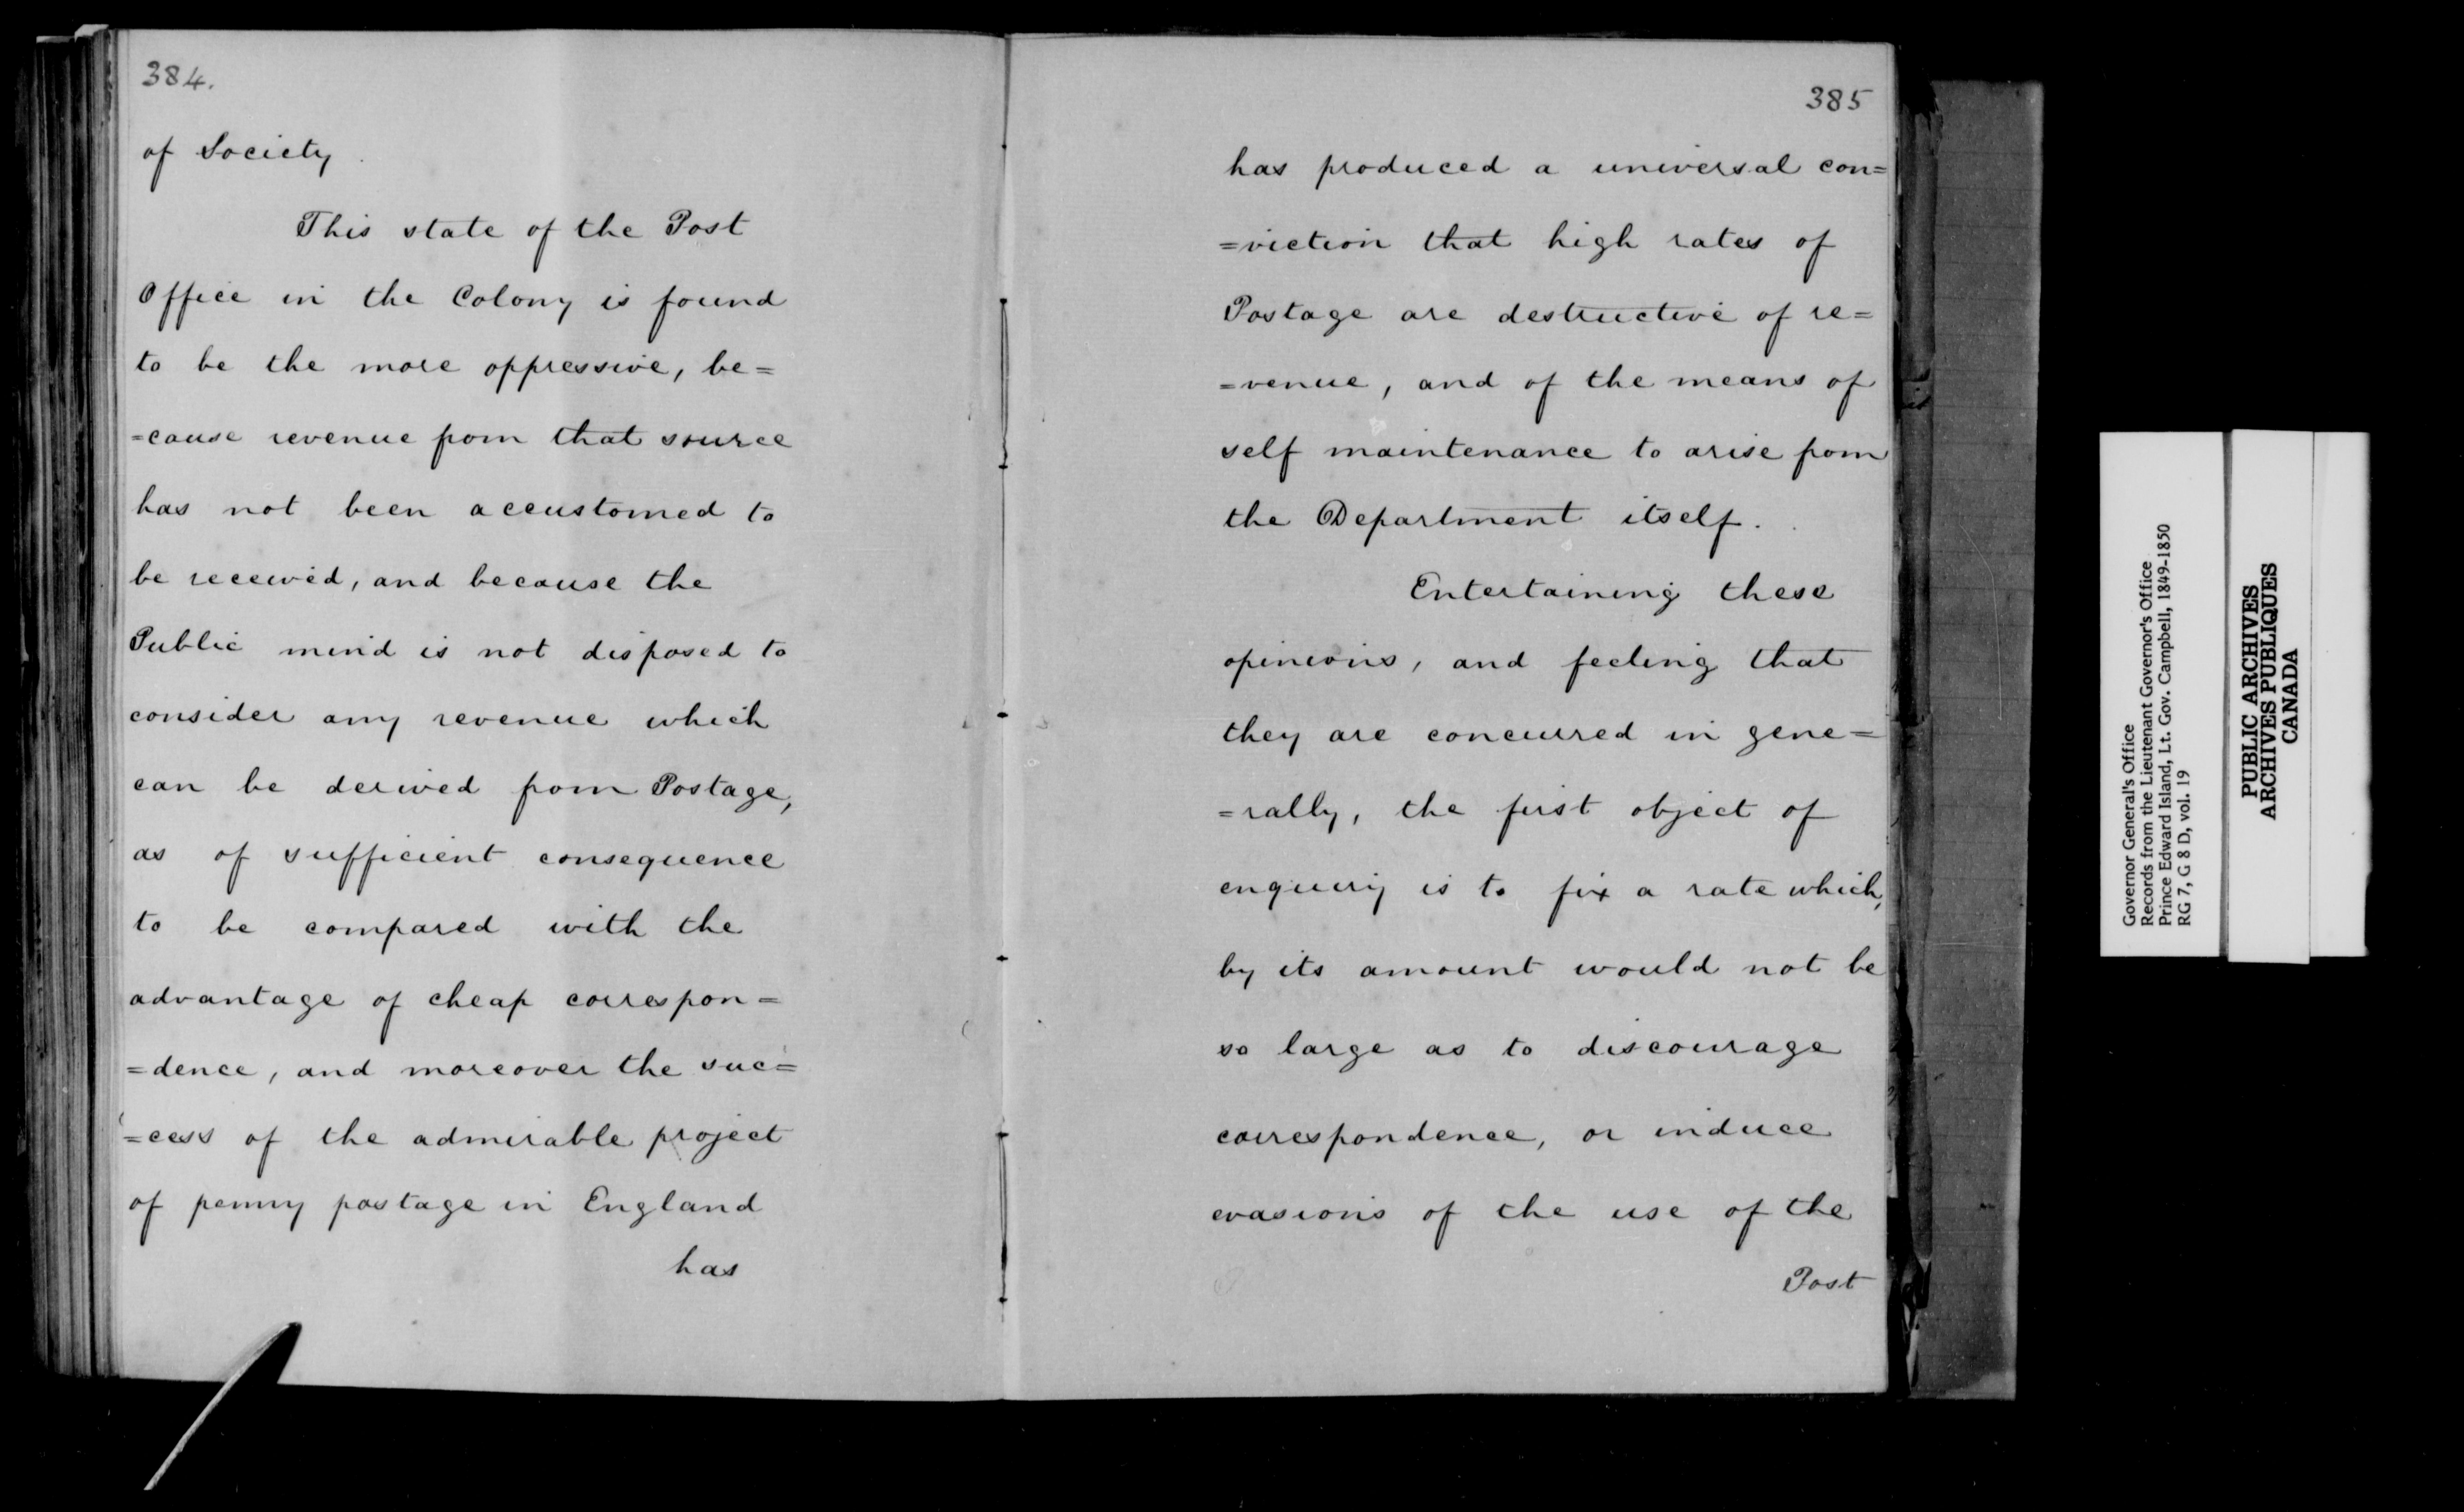 384.
of Society.
This state of the Post
Office in the Colony is found
to be the more oppressive, be=
=cause revenue from that source
has not been accustomed to
be received, and because the
Public mind is not disposed to
consider any revenue which
can be derived from Postage,
as of sufficient consequence
to be compared with the
advantage of cheap correspon=
=dence, and moreover the suc=
=cess of the admirable project
of penny postage in England
has
385
has produced a universal con=
=viction that high rates of
Postage are destructive of re=
=venue, and of the means of
self maintenance to arise from
the Department itself.
Entertaining these
opinions, and feeling that
they are concurred in gene=
=rally, the first object of
enquiry is to fix a rate which,
by its amount would not be
so large as to discourage
correspondence, or induce
evasions of the use of the
Post
Governor General's Office
Records from the Lieutenant Governor's Office
Prince Edward Island, Lt. Gov. Campbell, 1849-1850
RG 7, G 8 D, vol. 19
PUBLIC ARCHIVES
ARCHIVES PUBLIQUES
CANADA